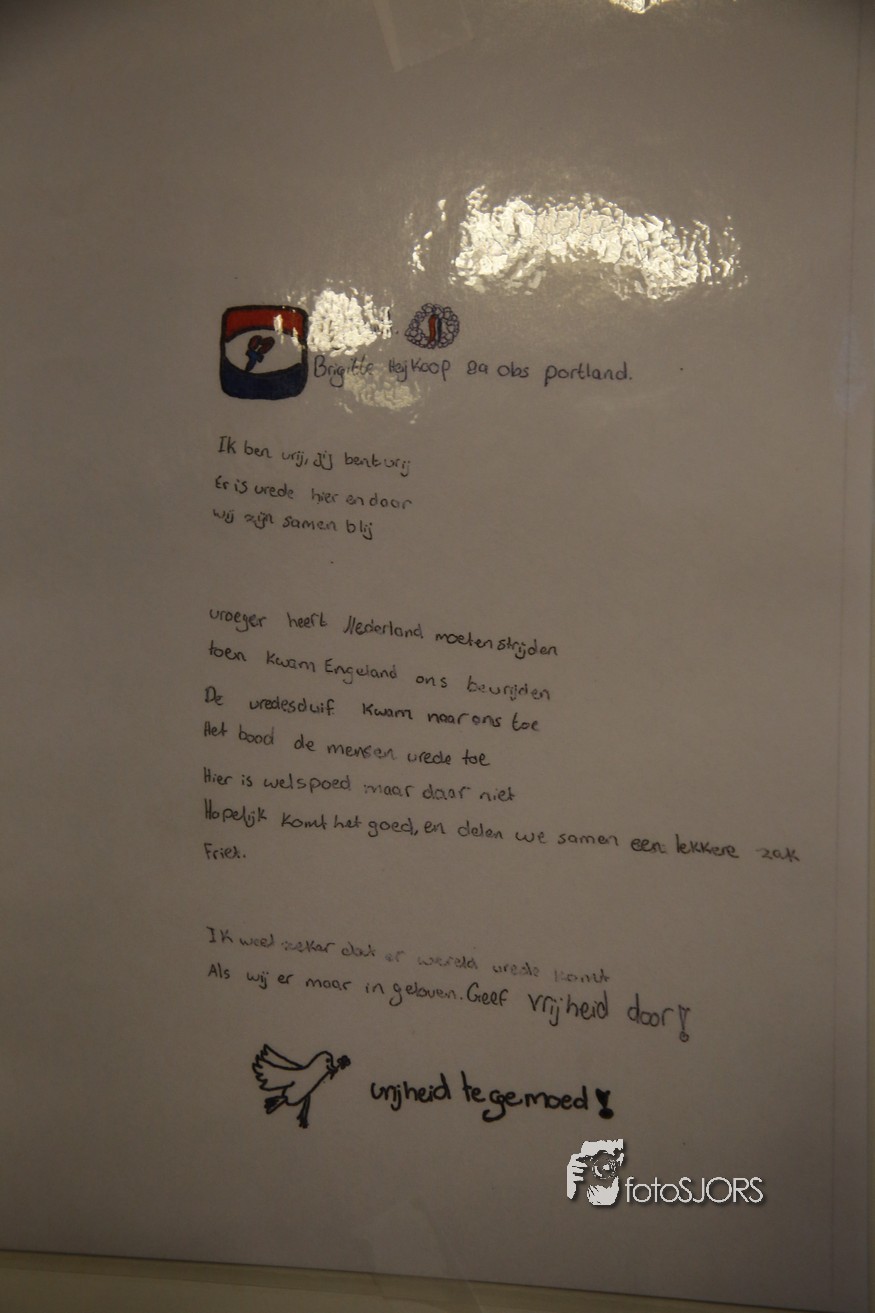 Brigitte Heijkoop 8a obs portland.
Ik ben vrij, jij bent vrij
Er is vrede hier en daar
wij zijn samen blij
vroeger heeft Nederland moeten strijden
toen kwam Engeland ons bevrijden
De vredesduif kwam naar ons toe
Het bood de mensen vrede toe
Hier is welspoed maar daar niet
Hopelijk komt het goed, en delen we samen een lekkere zak
Friet.
Ik weet zeker dat er wereld vrede komt
Als wij er maar in geloven. Geef vrijheid door!
vrijheid tegemoed!
fotoSJORS